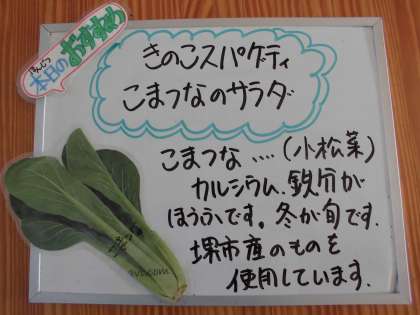 本日の
おすすめ
きのこスパゲティ
こまつなのサラダ
こまつな‥‥(小松菜)
カルシウム、鉄分が
ほうふです。冬が旬です。
堺市産のものを
使用しています。